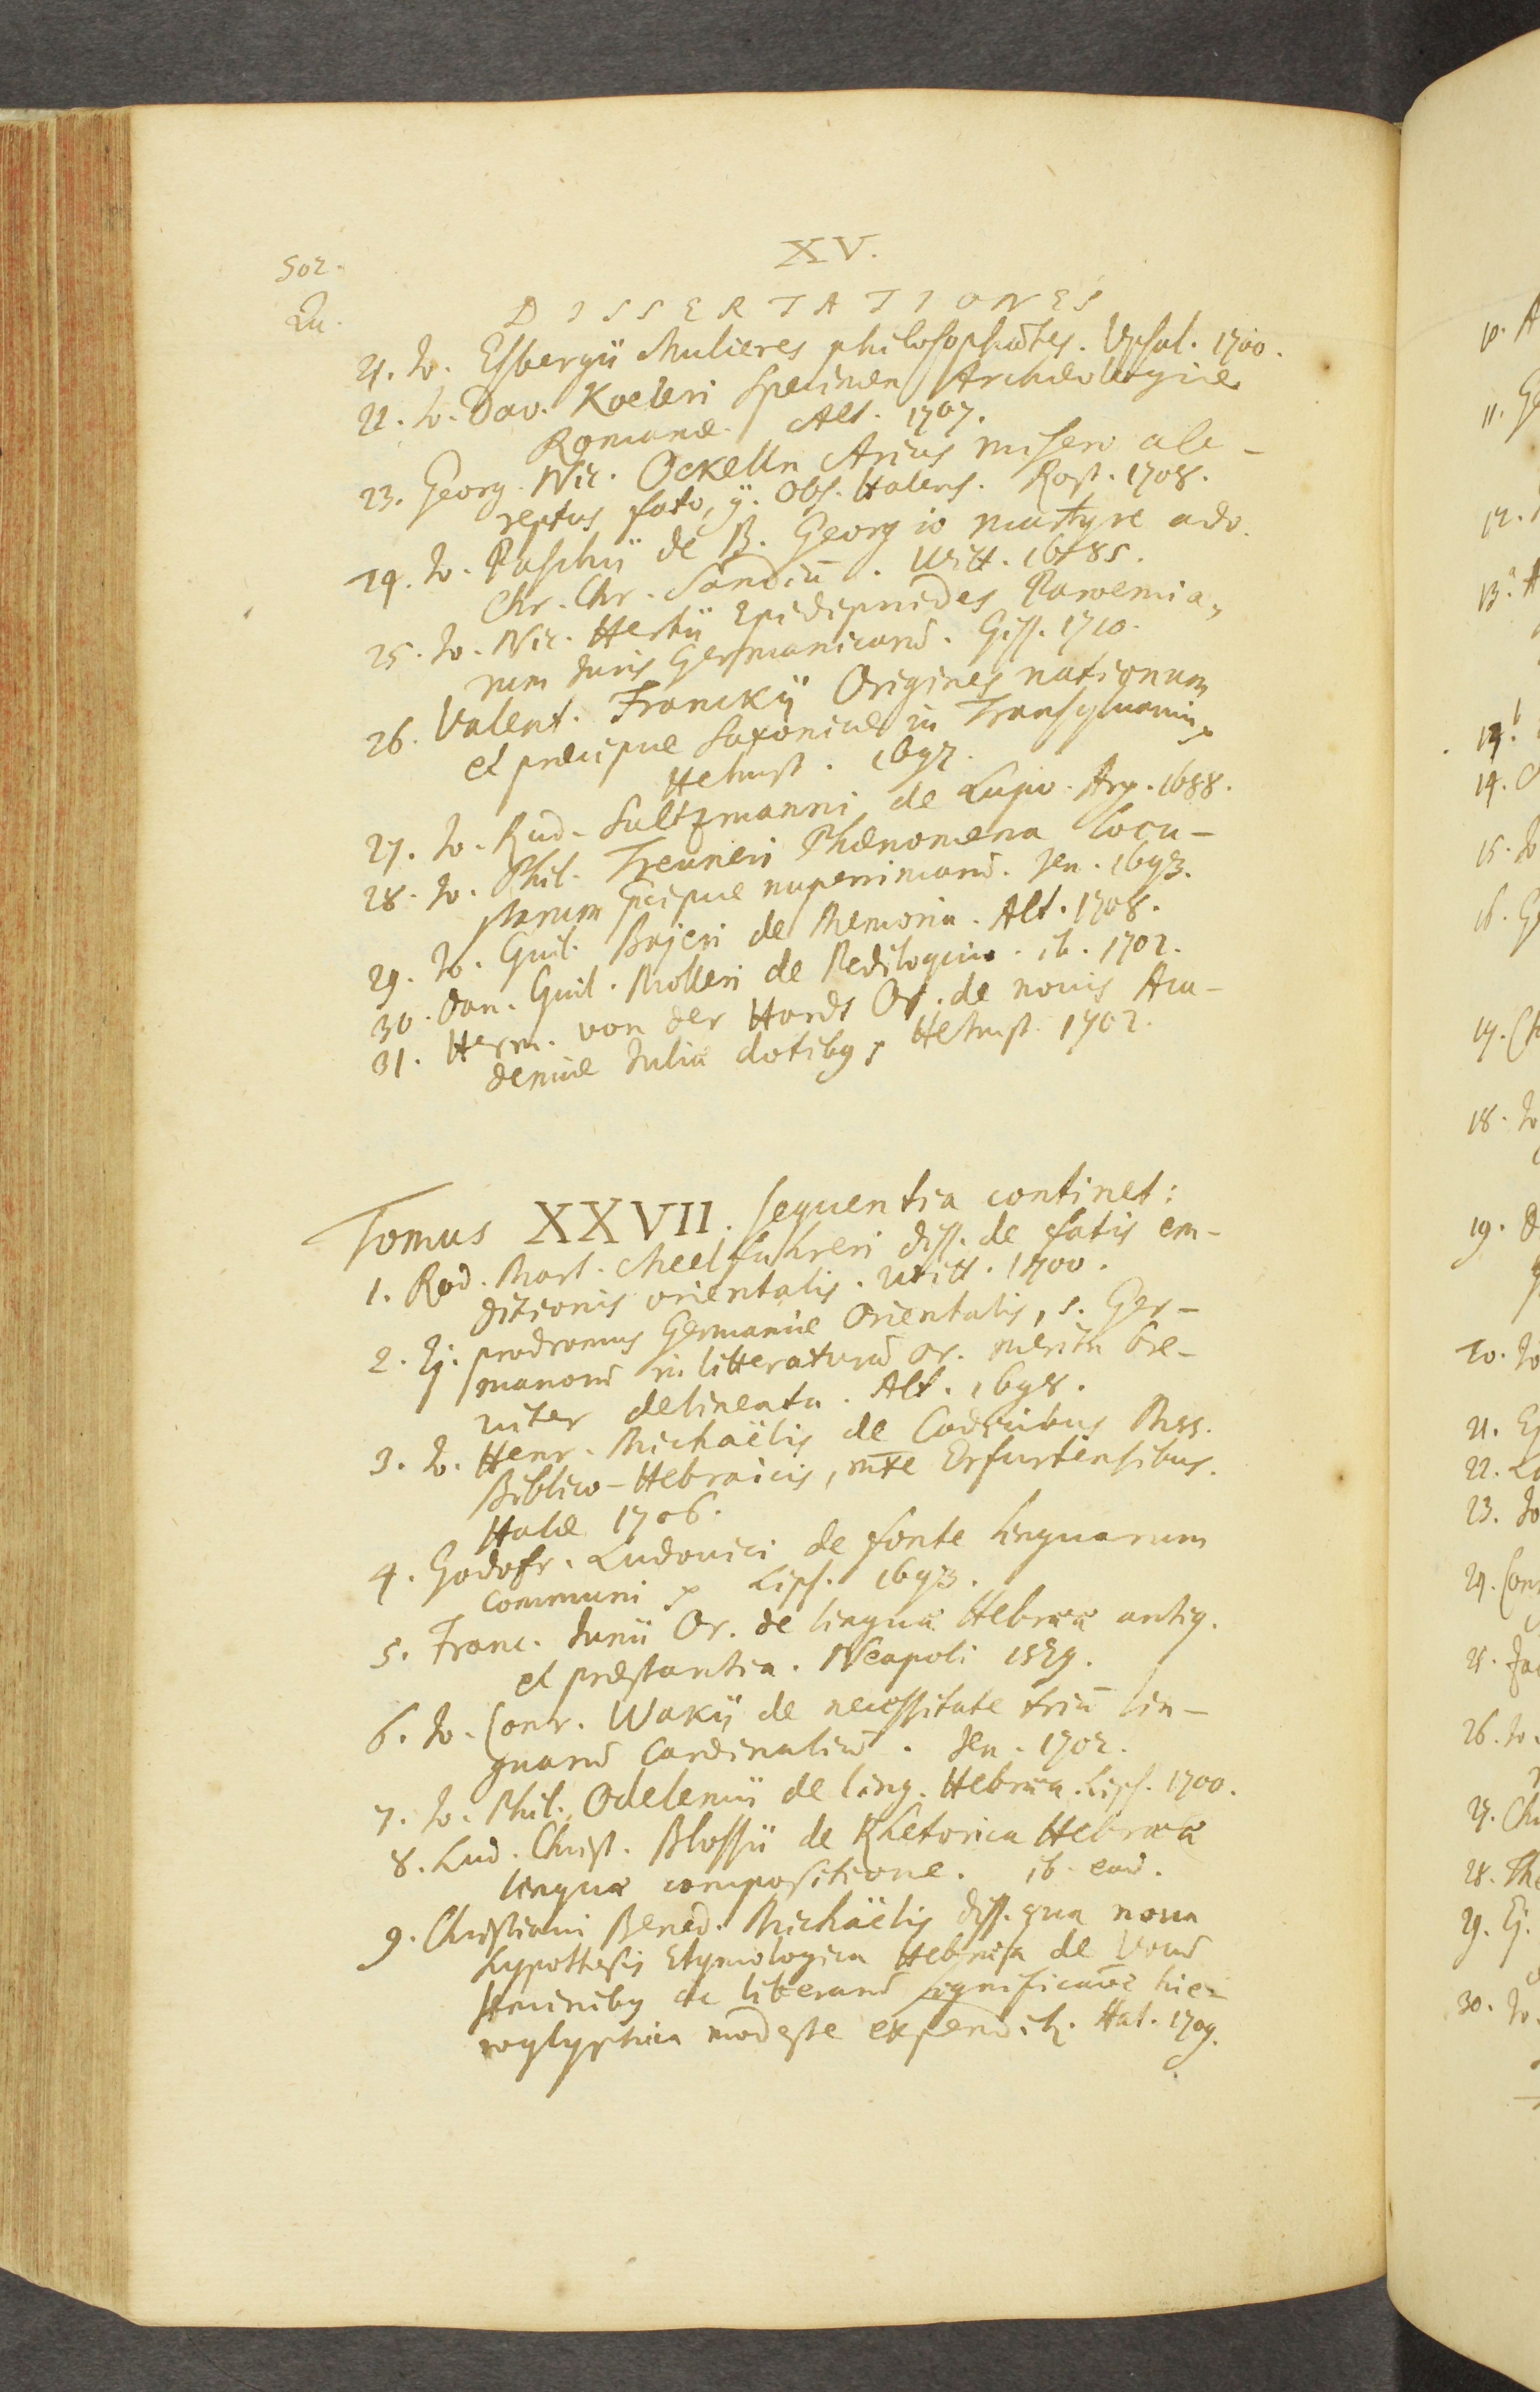 502.
XV.
Qu.
DISSERTATIONES
21. Jo. Esbergii Mulieres philosophãtes. Upsal. 1700.
22. Jo. Dav. Koeleri Specimen Archæologiæ
Romanæ. Alt. 1707.
23. Georg. Nic. Ockelln Arius misero ab-
reptus fato, Obs. Halens. Rost. 1708.
24. Jo. Paschii de B. Georgio martyre adv.
Chr. Chr. Sandiũ. Witt. 1685.
25. Jo. Nic. Hertii Epidipnides Paroemia,
rum Juris Germanicarũ. Giss. 1710.
26. Valent. Franckij Origines nationum
et præcipue Saxonicæ in Transylvania
Helmst. 1697.
27. Jo. Rud. Saltzmanni de Lupo. Arg. 1688.
28. Jo. Phil. Treuneri Phænomena Locu-
starum nuperrimarũ. Jen. 1693.
29. Jo. Guil. Bajeri de Memoria. Alt. 1708.
30. Dan. Guil. Molleri de Pedilogio. ib. 1702.
31. Herm. von der Hardt Or. de novis Aca-
demiæ Julia dotibg Helmst. 1702.
Tomus XXVII. sequentia continet:
1. Rod. Mart. Meelfuhreri diss. de fatis eru-
ditionis orientalis. Witt. 1700.
2. Ej. prodromus Germaniæ Orientalis, s. Ger-
manorũ in litteraturũ or. merita bre-
viter delineata. Alt. 1698.
3. Jo. Henr. Michaëlis de Codicibus Mss.
Biblico-Hebraicis, mxe Erfurtensibus.
Halæ 1706.
4. Godofr. Ludovici de fonte linguarum
communi Lips. 1693.
5. Franc. Junii Or. de linguæ Hebrææ antiq.
et præstantia. Neapoli 1579.
6. Jo. Conr. Wakij de necessitate triũ lin-
guarũ Cardinaliũ. Jen. 1702.
7. Jo. Phil. Odelemii de ling. Hebræa. Lips. 1700.
8. Lud. Christ. Blossii de Rhetorica Hebrææ
linguæ compositione. ib. eod.
9. Christiani Bened. Michaëlis diss. qua nova
hypothesis Etymologica Hebræa de Vocũ
Seminibg ac literarũ significatõe hie-
roglyphica modeste expendit. Hal. 1709.